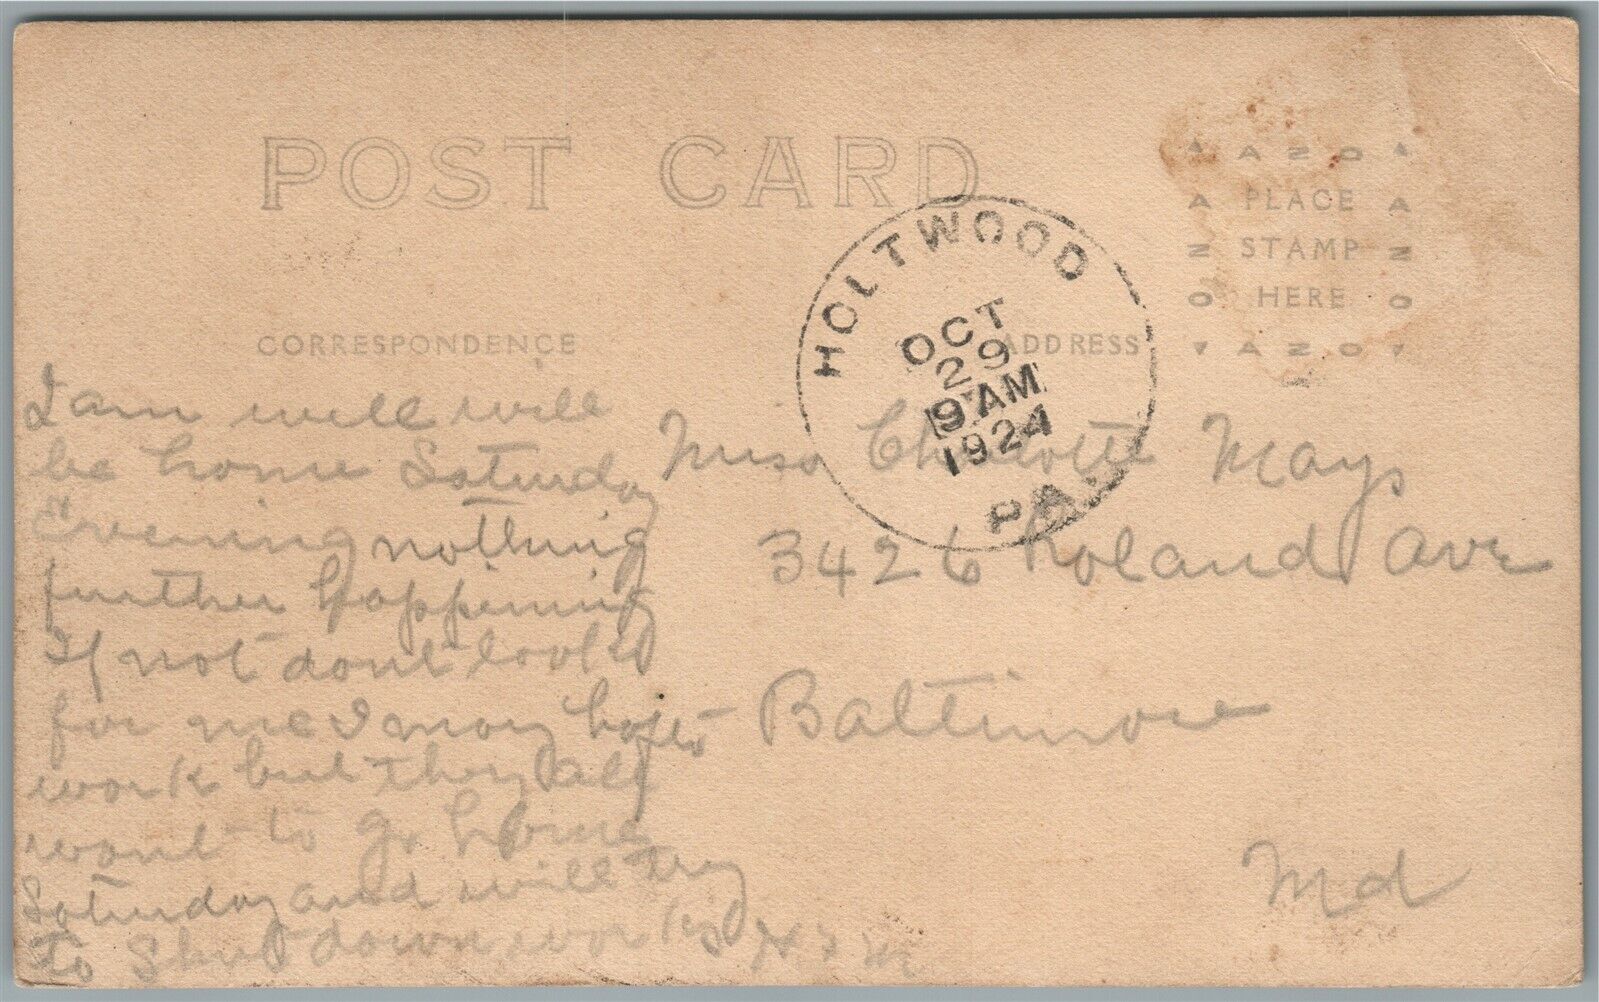 POST CARD
AZO
PLACE
STAMP
HERE
AZO
CORRESPONDENCE
ADDRESS
HOLTWOOD
OCT
29
9 AM
1924
PA.
I am well will
be home Saturday
Evening nothing
further happening
If not dont look
for me I may have to
work but they all
want to go home
Saturday and will try
to Shut down works
Miss Charlotte Mays
3426 Roland Ave
Baltimore
Md